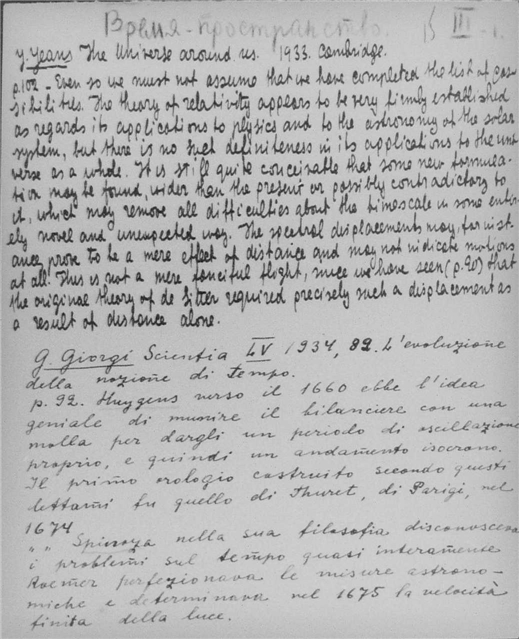 Время - пространство. III
J. Jeans The Universe around us. 1933. Cambridge.
p. 102 - Even so we must not assume that we have completed the list of pos-
sibilities. The theory of relativity appears to be very firmly established
as regards its applications to physics and to the astronomy of the solar
system, but there is no such definiteness in its applications to the uni
verse as a whole. It is still quite conceivable that some new formula-
tion may be found, wider than the present or possibly contradictory to
it, which may remove all difficulties about the timescale in some entir-
ely novel and unexpected way. The spectral displacements may, for inst-
ance, prove to be a mere effect of distance and may not indicate motions
at all. This is not a mere fanciful flight, since we have seen (p. 90) that
the original theory of de Sitter required precisely such a displacement as
a result of distance alone.
G. Giorgi Scientia LV 1934, 89. L'evoluzione
della nozione di tempo.
p. 92. Huygens verso il 1660 ebbe l'idea
geniale di munire il bilanciere con una
molla per dargli un periodo di oscillazione
proprio, e quindi un andamento isocrono.
Il primo orologio costruito secondo questi
dettami fu quello di Thuret, di Parigi, nel
1674
" " Spinoza nella sua filosofia disconosceva
i problemi sul tempo quasi interamente
Roemer perfezionava le misure astrono-
miche e determinava nel 1675 la velocità
finita della luce.